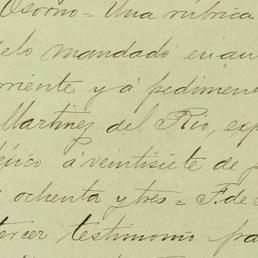 Osorno = Una rúbrica
delo mandado en au
rriente y á pedimen
Martinez del Rio, exp
éxico á veintisiete de
ochenta y tres = F. de
tercer testimonio pa